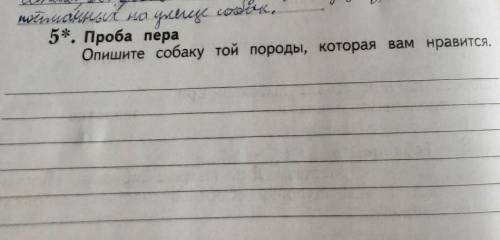 пойманных на улице собак.
5*. Проба пера
Опишите собаку той породы, которая вам нравится.